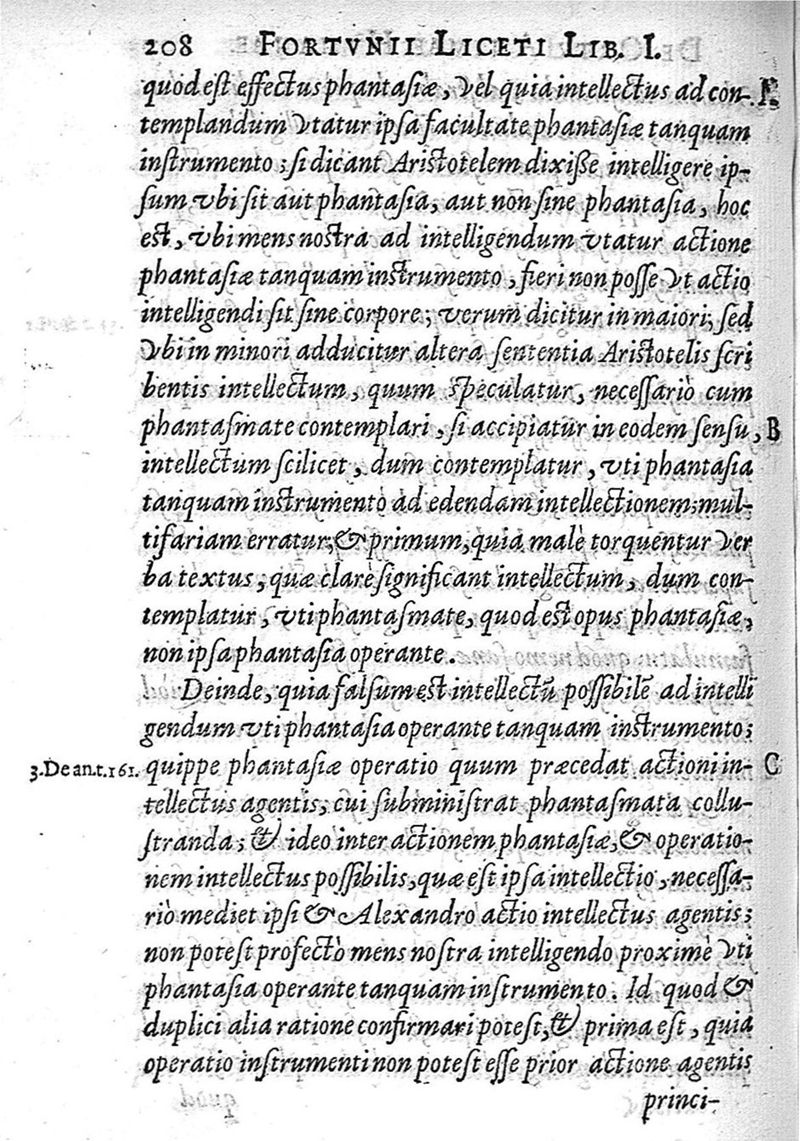 208 FORTVNII LICETI LIB. I.
quod est effectus phantasiæ, vel quia intellectus ad con-
templandum vtatur ipsa facultate phantasiæ tanquam
instrumento; si dicant Aristotelem dixisse intelligere ip-
sum vbi sit aut phantasia, aut non sine phantasia, hoc
est, vbi mens nostra ad intelligendum vtatur actione
phantasiæ tanquam instrumento, fieri non posse vt actio
intelligendi sit sine corpore; verum dicitur in maiori; sed
vbi in minori adducitur altera sententia Aristotelis scri
bentis intellectum, quum speculatur, necessariò cum
phantasmate contemplari, si accipiatur in eodem sensu, B
intellectum scilicet, dum contemplatur, vti phantasia
tanquam instrumento ad edendam intellectionem; mul-
tifariam erratur; & primum, quia malè torquentur ver
ba textus, quæ clarè significant intellectum, dum con-
templatur, vti phantasmate, quod est opus phantasiæ,
non ipsa phantasia operante.
Deinde, quia falsum est intellectū possibilē ad intelli
gendum vti phantasia operante tanquam instrumento;
3. De an. t. 161. quippe phantasiæ operatio quum præcedat actioni in- C
tellectus agentis, cui subministrat phantasmata collu-
stranda; & ideo inter actionem phantasiæ, & operatio-
nem intellectus possibilis, quæ est ipsa intellectio, necessa-
riò mediet ipsi & Alexandro actio intellectus agentis;
non potest profectò mens nostra intelligendo proximè vti
phantasia operante tanquam instrumento. Id quod &
duplici alia ratione confirmari potest, & prima est, quia
operatio instrumenti non potest esse prior actione agentis
princi-